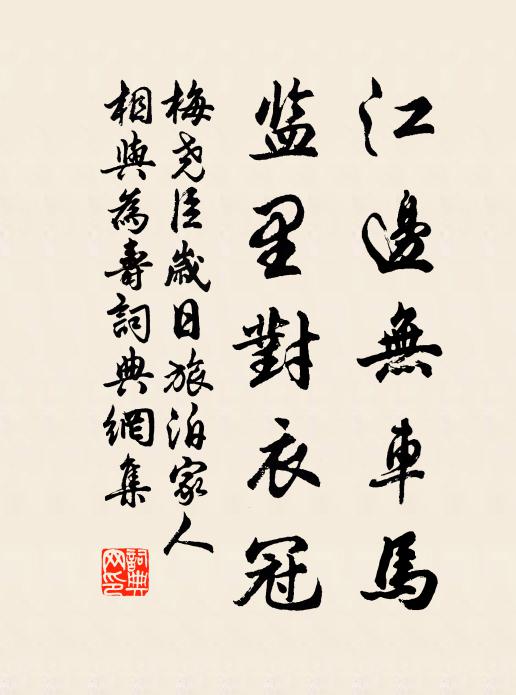 江邊無車馬
监里對衣冠
梅尧臣歲日旅泊家人
相與為壽詞典網集
詞典网印